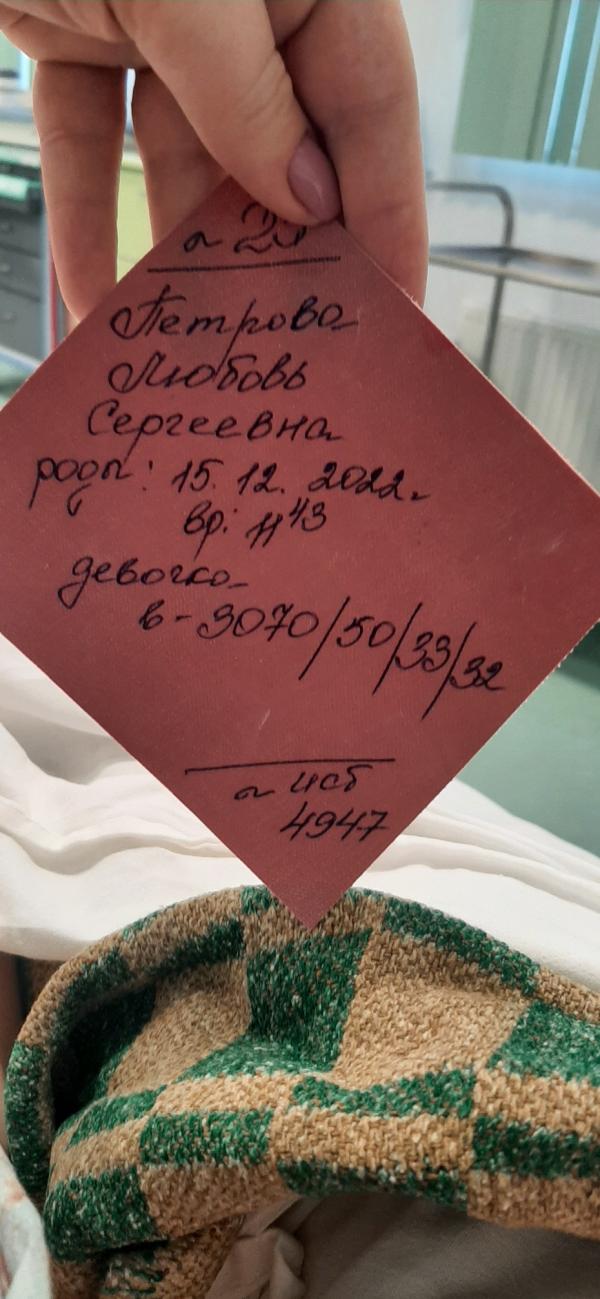 ~ 25
Петрова
Любовь
Сергеевна
роды: 15. 12. 2022г.
вр: 11 43
девочка
в- 3070/50/33/32
~ ист
4947